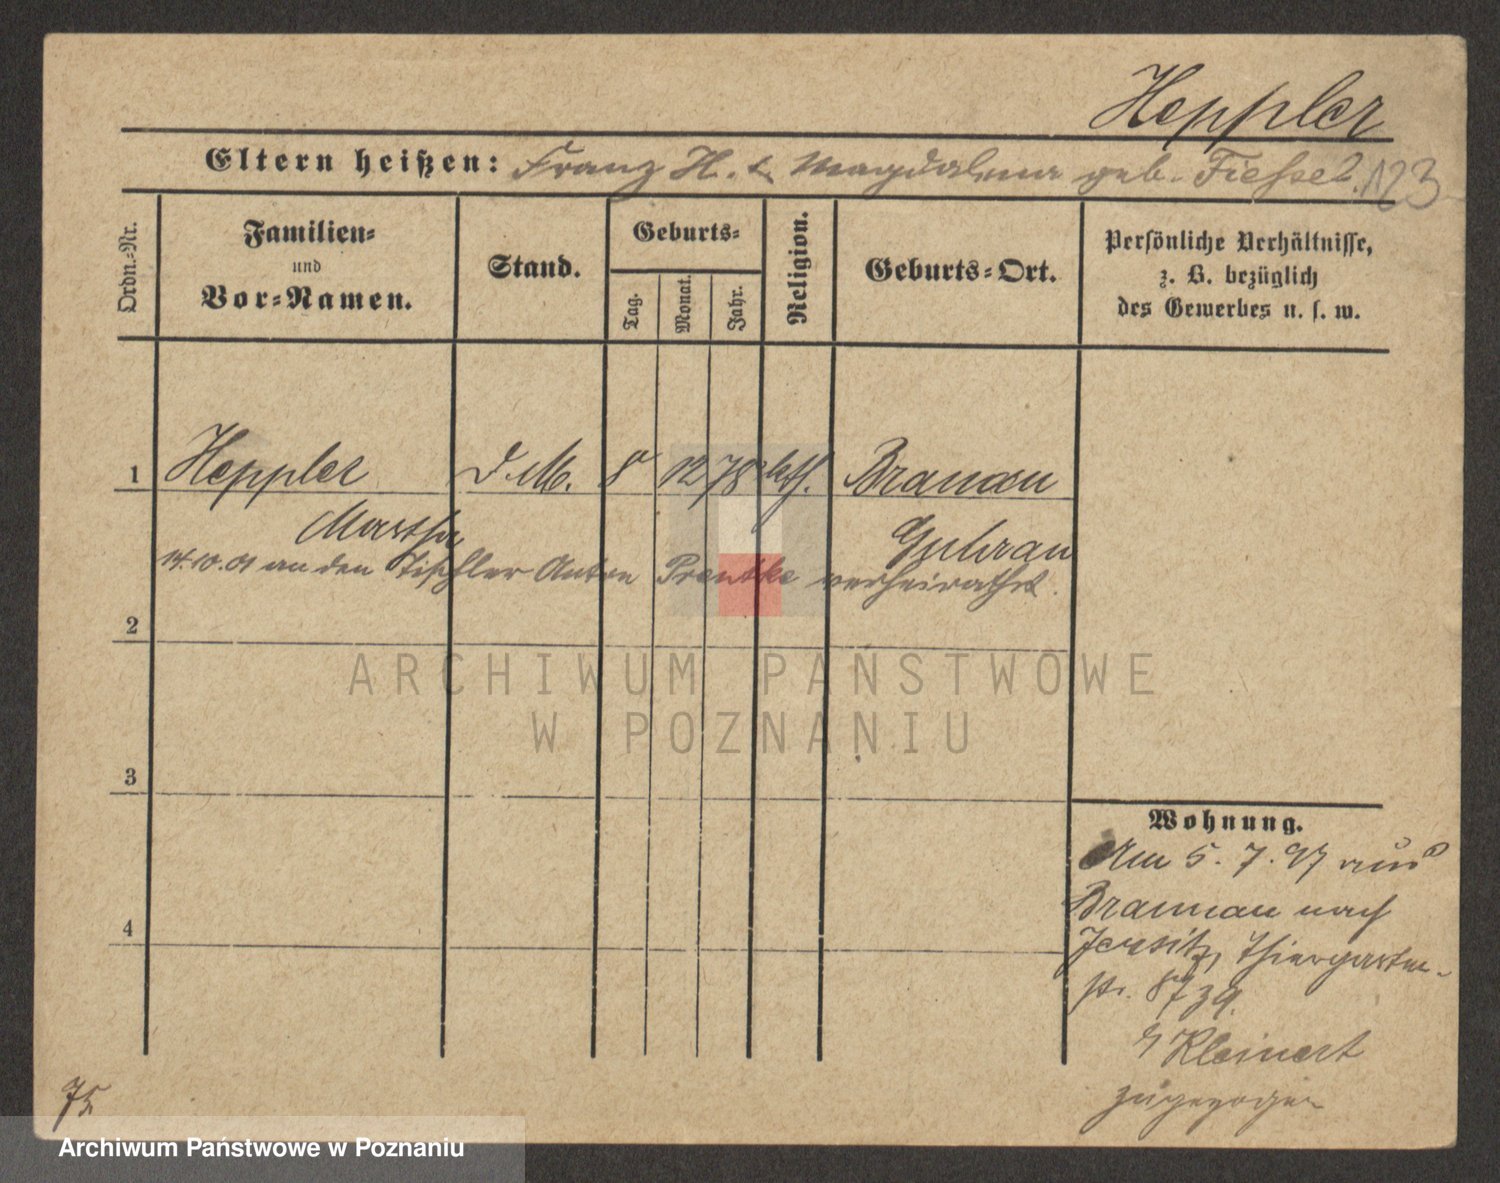 Heppler
Eltern heißen: Franz H. u. Magdalena geb. Fiessel.
123
Ordn.-Nr.
Familien-
und
Vor-Namen.
Stand.
Geburts-
Tag.
Monat.
Jahr.
Religion.
Geburts-Ort.
Persönliche Verhältnisse,
z. B. bezüglich
des Gewerbes u. s. w.
1 Heppler D. M. 8 12 78 kth. Braunau
Martha Guhrau
14.10.01 an den Tischler Anton Prentke verheirathet.
2
3
4
Wohnung.
Am 5. 7. 97 aus
Braunau nach
Jersitz, Thiergarten-
str. 8
Kleinert
zugezogen
75
ARCHIWUM PAŃSTWOWE
W POZNANIU
Archiwum Państwowe w Poznaniu